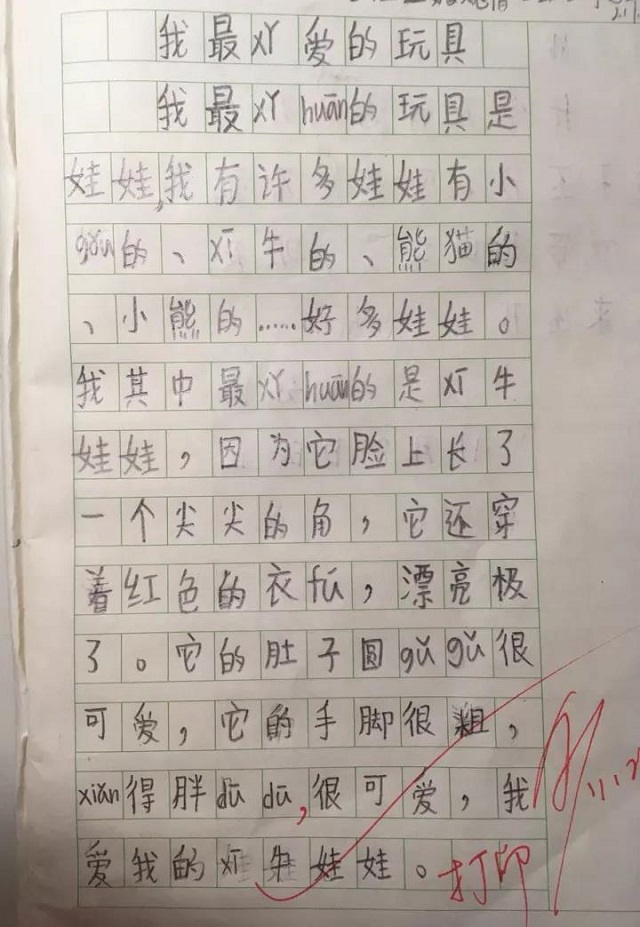 我最xǐ爱的玩具
我最xǐhuān的玩具是
娃娃,我有许多娃娃有小
gǒu的、xī牛的、熊猫的
、小熊的……好多娃娃。
我其中最xǐhuān的是xī牛
娃娃，因为它脸上长了
一个尖尖的角，它还穿
着红色的衣fú，漂亮极
了。它的肚子圆gǔgǔ很
可爱，它的手脚很粗，
xiǎn得胖dūdū,很可爱，我
爱我的xī牛娃娃。打印